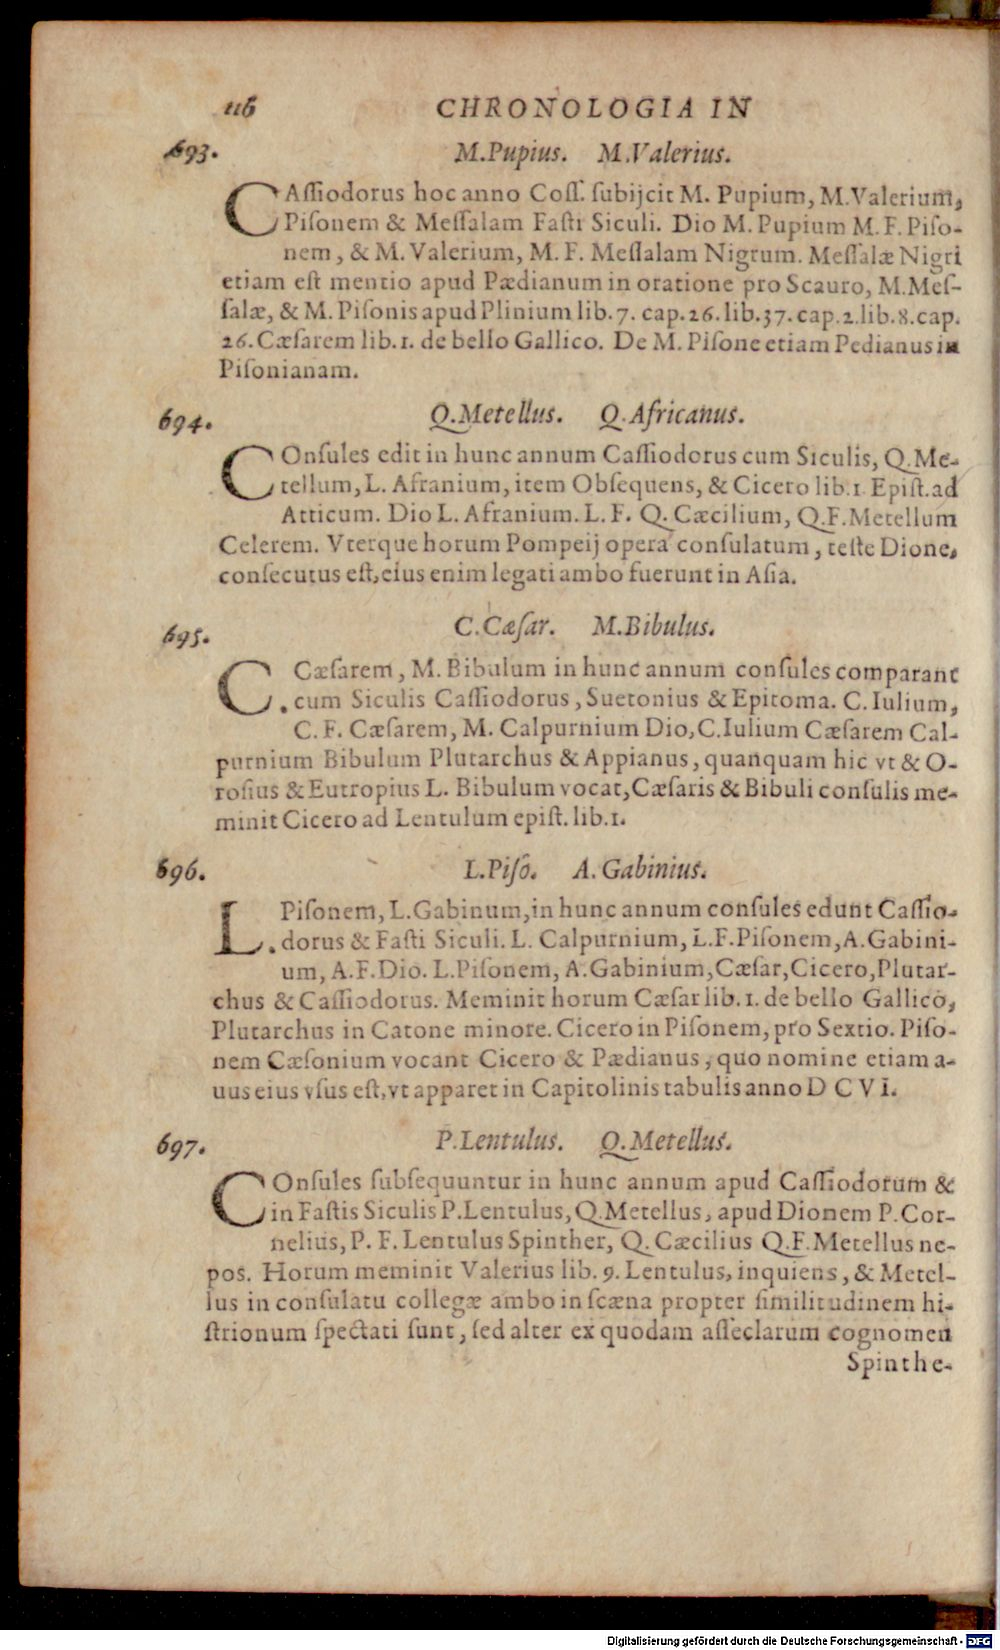 116 CHRONOLOGIA IN
693. M.Pupius. M.Valerius.
CAſſiodorus hoc anno Coſſ. ſubijcit M. Pupium, M.Valerium,
Piſonem & Meſſalam Faſti Siculi. Dio M. Pupium M. F. Piſo-
nem, & M. Valerium, M. F. Meſſalam Nigrum. Meſſalæ Nigri
etiam eſt mentio apud Pædianum in oratione pro Scauro, M.Meſ-
ſalæ, & M. Piſonis apud Plinium lib. 7. cap. 26. lib. 37. cap. 2. lib. 8. cap.
26. Cæſarem lib. 1. de bello Gallico. De M. Piſone etiam Pedianus in
Piſonianam.
694. Q.Metellus. Q.Africanus.
COnſules edit in hunc annum Caſſiodorus cum Siculis, Q.Me-
tellum, L. Afranium, item Obſequens, & Cicero lib. 1. Epiſt. ad
Atticum. Dio L. Afranium. L. F. Q. Cæcilium, Q.F.Metellum
Celerem. Vterque horum Pompeij opera conſulatum, teſte Dione,
conſecutus eſt, eius enim legati ambo fuerunt in Aſia.
695. C.Cæſar. M.Bibulus.
C. Cæſarem, M. Bibulum in hunc annum conſules comparant
cum Siculis Caſſiodorus, Suetonius & Epitoma. C. Iulium,
C. F. Cæſarem, M. Calpurnium Dio, C.Iulium Cæſarem Cal-
purnium Bibulum Plutarchus & Appianus, quanquam hic vt & O-
roſius & Eutropius L. Bibulum vocat, Cæſaris & Bibuli conſulis me-
minit Cicero ad Lentulum epiſt. lib. 1.
696. L.Piſo. A.Gabinius.
L. Piſonem, L.Gabinum, in hunc annum conſules edunt Caſſio-
dorus & Faſti Siculi. L. Calpurnium, L.F.Piſonem, A.Gabini-
um, A.F.Dio. L.Piſonem, A.Gabinium, Cæſar, Cicero, Plutar-
chus & Caſſiodorus. Meminit horum Cæſar lib. 1. de bello Gallico,
Plutarchus in Catone minore. Cicero in Piſonem, pro Sextio. Piſo-
nem Cæſonium vocant Cicero & Pædianus, quo nomine etiam a-
uus eius vſus eſt, vt apparet in Capitolinis tabulis anno D C V I.
697. P.Lentulus. Q.Metellus.
COnſules ſubſequuntur in hunc annum apud Caſſiodorum &
in Faſtis Siculis P.Lentulus, Q.Metellus, apud Dionem P.Cor-
nelius, P. F. Lentulus Spinther, Q. Cæcilius Q.F.Metellus ne-
pos. Horum meminit Valerius lib. 9. Lentulus, inquiens, & Metel-
lus in conſulatu collegæ ambo in ſcæna propter ſimilitudinem hi-
ſtrionum ſpectati ſunt, ſed alter ex quodam aſſeclarum cognomen
Spinthe-
Digitalisierung gefördert durch die Deutsche Forschungsgemeinschaft - DFG